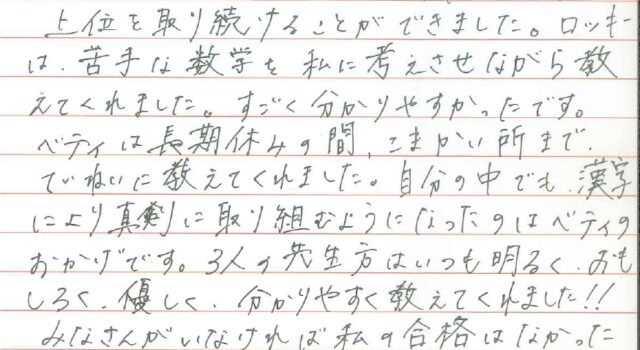 上位を取り続けることができました。ロッキー
は、苦手な数学を私に考えさせながら教
えてくれました。すごく分かりやすかったです。
ベティは長期休みの間、こまかい所まで、
ていねいに教えてくれました。自分の中でも、漢字
により真剣に取り組むようになったのはベティの
おかげです。3人の先生方はいつも明るく、おも
しろく、優しく、分かりやすく教えてくれました!!
みなさんがいなければ私の合格はなかった